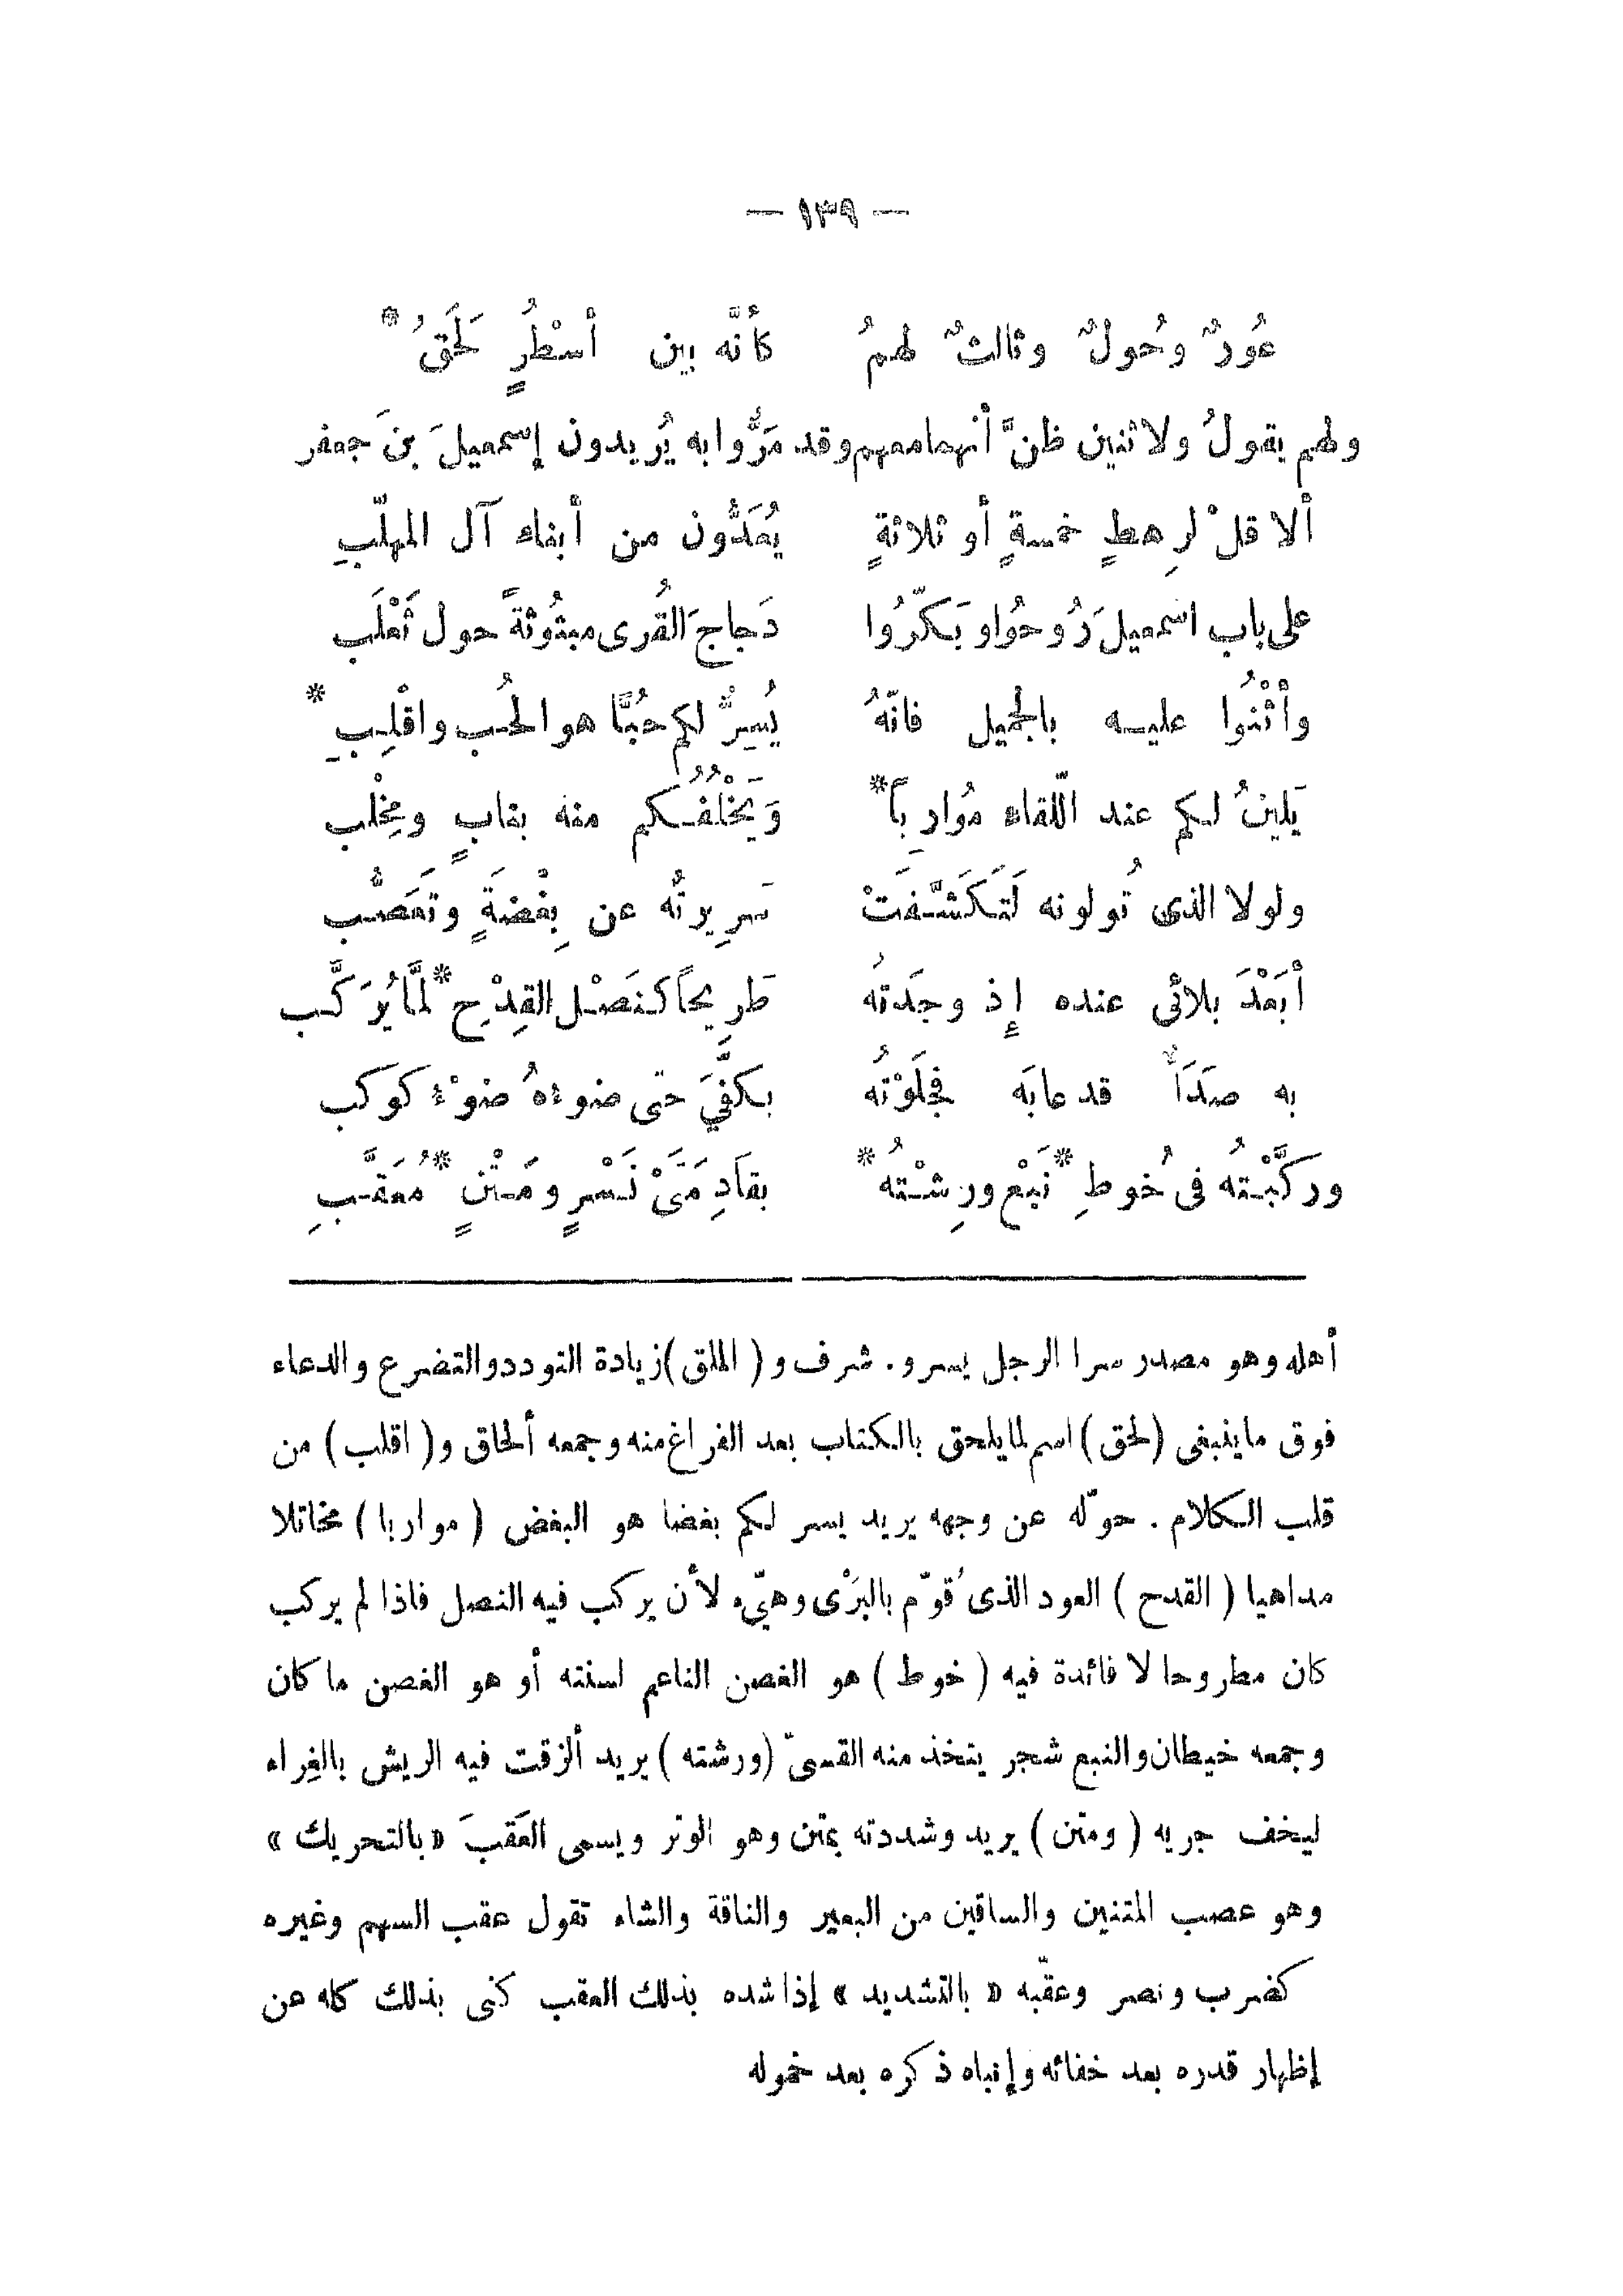 — ١٣٩ —
عُورٌ وحُولٌ وثالثٌ لهمُ كأنَّه بين أسْطُرٍ لَحَقُ *
ولهم يقولُ ولاثنين ظنَّ أنهما معهم وقد مَرُّوا به يُريدون إسمعيلَ بنَ جعفر
ألا قلْ لرِهطٍ خمسةٍ أو ثلاثةٍ يُعَدُّون من أبناء آل المهلّبِ
على باب اسمعيلَ رُوحُوا وبَكّرُوا دَجاجَ القُرى مبثُوثةً حول ثَعْلَب
وأثْنُوا عليه بالجميل فانّهُ يُسِرُّ لكم حُبًّا هو الحُب واقْلِبِ *
يَلينُ لكم عند اللّقاء مُوارِباً * وَيَخْلُفُكم منه بنابٍ ومِخْلب
ولولا الذى تُولونه لَتَكَشَّفَتْ سَرِيرتُه عن بِغْضَةٍ وتَعَصُّب
أبَعْدَ بلائى عنده إذ وجَدتُه طَرِيحاً كنَصْل القِدْحِ * لمَّا يُرَكَّب
به صَدَأٌ قد عابَه فَجَلَوْتُه بكفَّيَ حتى ضوءهُ ضوْءُ كوكب
وركَّبْتُه فى خُوطِ * نَبْعٍ ورِشْتُه * بقَادِمَتَىْ نَسْرٍ ومَتْنٍ * مُعَقَّبِ
أهله وهو مصدر سرا الرجل يسرو. شرف و ( الملق ) زيادة التودد والتضرع والدعاء
فوق ماينبغى ( لحق ) اسم لما يلحق بالكتاب بعد الفراغ منه وجمعه ألحاق و ( اقلب ) من
قلب الكلام . حوّله عن وجهه يريد يسر لكم بغضا هو البغض ( مواربا ) مخاتلا
مداهيا ( القدح ) العود الذى قُوّم بالبَرْى وهيّء لأن يركب فيه النصل فاذا لم يركب
كان مطروحا لا فائدة فيه ( خوط ) هو الغصن الناعم لسنته أو هو الغصن ما كان
وجمعه خيطان والنبع شجر يتخذ منه القسىّ ( ورشته ) يريد ألزقت فيه الريش بالغِراء
ليخف جريه ( ومتن ) يريد وشددته بمتن وهو الوتر ويسمى العَقَبَ « بالتحريك »
وهو عصب المتنين والساقين من البعير والناقة والشاء تقول عقب السهم وغيره
كضرب ونصر وعقّبه « بالتشديد » إذا شده بذلك العقب كنى بذلك كله عن
إظهار قدره بعد خفائه وإنباه ذكره بعد خموله